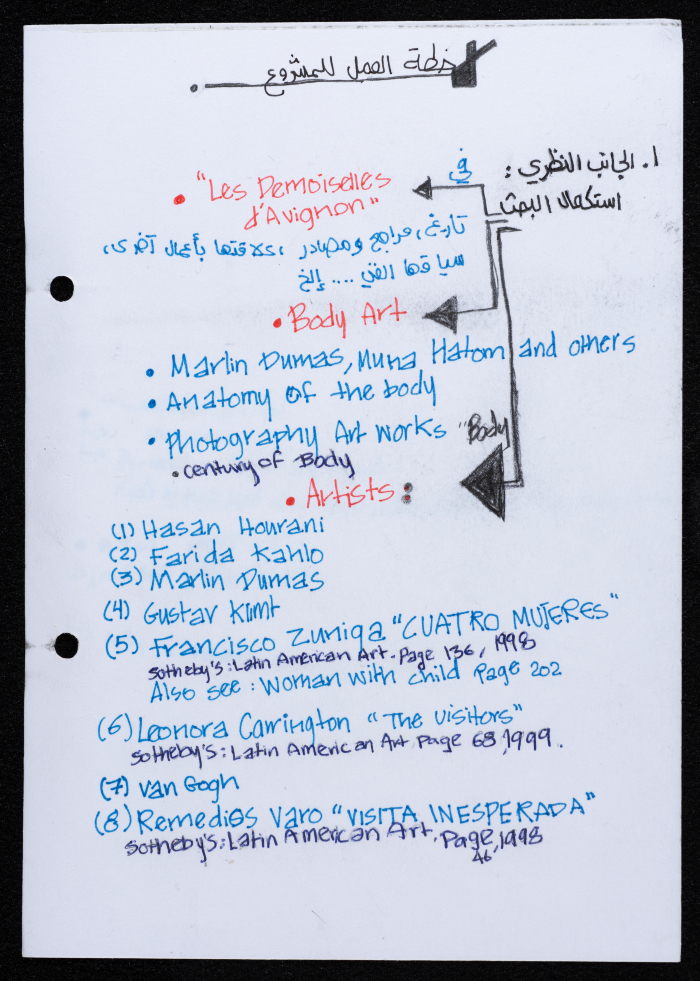 خطة العمل للمشروع
١. الجانب النظري :
استكمال البحث
في
• "Les Demoiselles
d'Avignon"
تاريخ، مراجع ومصادر، علاقتها بأعمال أخرى،
سياقها الفني .... إلخ
• Body Art
• Marlin Dumas, Muna Hatom and others
• Anatomy of the body
• Photography Art works "Body
• century of Body
• Artists :
(1) Hasan Hourani
(2) Farida Kahlo
(3) Marlin Dumas
(4) Gustav Klimt
(5) Francisco Zuniga "CUATRO MUJERES"
Sotheby's: Latin American Art. Page 136, 1998
Also see : Woman with child Page 202
(6) Leonora Carrington "The visitors"
Sotheby's: Latin American Art Page 68, 1999.
(7) Van Gogh
(8) Remedios Varo "VISITA INESPERADA"
Sotheby's: Latin American Art. Page, 1998
46